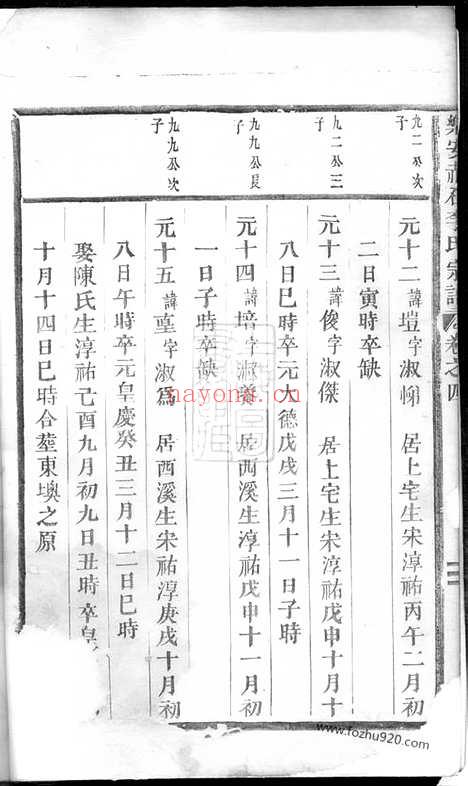 樂安
李氏宗譜
卷之四
三
九二公次子
元十二 諱塏字淑悌 居上宅生宋淳祐丙午二月初
二日寅時卒缺
九二公三子
元十三 諱俊字淑傑 居上宅生宋淳祐戊申十月十
八日巳時卒元大德戊戌三月十一日子時
九九公長子
元十四 諱培字淑養 居西溪生淳祐戊申十一月初
一日子時卒缺
九九公次子
元十五 諱堇字淑爲 居西溪生宋祐淳庚戌十月初
八日午時卒元皇慶癸丑三月十二日巳時
娶陳氏生淳祐己酉九月初九日丑時卒皇
十月十四日巳時合葬東墺之原
nayona.cn
www.fozhu920.com